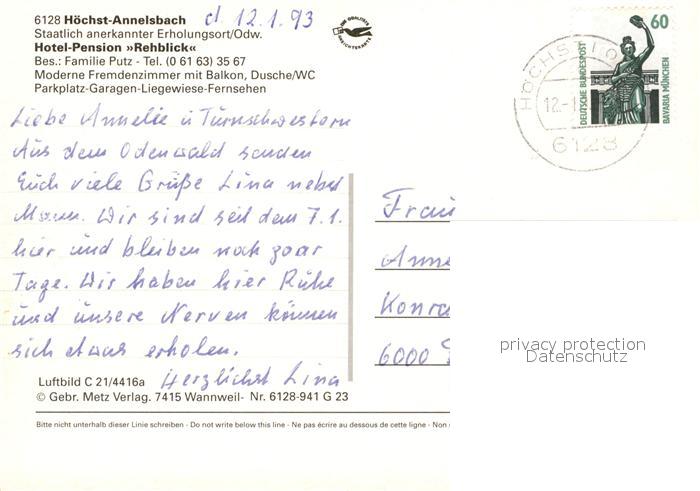 6128 Höchst-Annelsbach
d. 12.1.93
Staatlich anerkannter Erholungsort/Odw.
Hotel-Pension »Rehblick«
Bes.: Familie Putz - Tel. (0 61 63) 35 67
Moderne Fremdenzimmer mit Balkon, Dusche/WC
Parkplatz-Garagen-Liegewiese-Fernsehen
Liebe Annelie u Turnschwestern
Aus dem Odenwald senden
Euch viele Grüße Lina nebst
Mann. Wir sind seit dem 7.1.
hier und bleiben noch paar
Tage. Wir haben hier Ruhe
und unsere Nerven können
sich etwas erholen.
Herzlichst Lina
Luftbild C 21/4416a
© Gebr. Metz Verlag. 7415 Wannweil- Nr. 6128-941 G 23
Bitte nicht unterhalb dieser Linie schreiben - Do not write below this line - Ne pas écrire au dessous de cette ligne - Non
60
DEUTSCHE BUNDESPOST
BAVARIA MÜNCHEN
HÖCHST
12.-1
6128
Frau
Anne
Konra
6000
privacy protection
Datenschutz